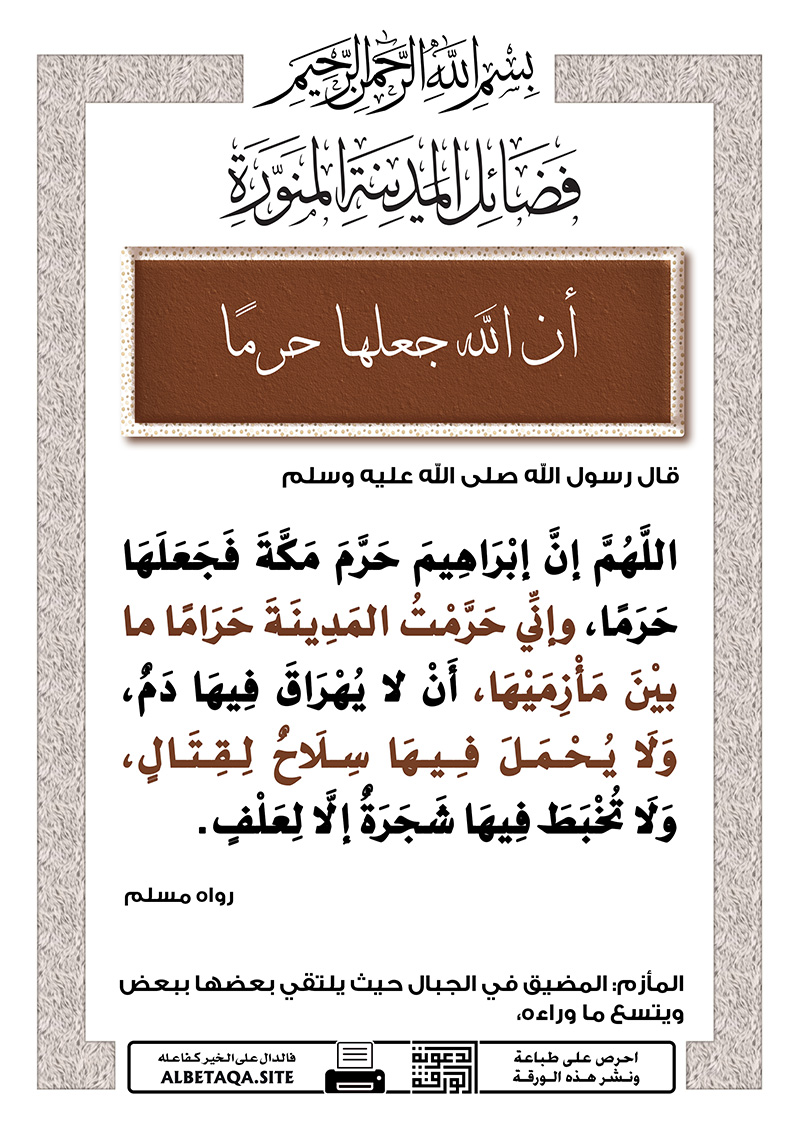 بِسْمِ اللَّهِ الرَّحْمَنِ الرَّحِيمِ
فَضَائِلُ المَدِينَةِ المُنَوَّرَةِ
أن الله جعلها حرمًا
قال رسول الله صلى الله عليه وسلم
اللَّهُمَّ إنَّ إبْرَاهِيمَ حَرَّمَ مَكَّةَ فَجَعَلَهَا
حَرَمًا، وإنِّي حَرَّمْتُ المَدِينَةَ حَرَامًا ما
بيْنَ مَأْزِمَيْهَا، أَنْ لا يُهْرَاقَ فِيهَا دَمٌ،
وَلَا يُحْمَلَ فِيهَا سِلَاحٌ لِقِتَالٍ،
وَلَا تُخْبَطَ فِيهَا شَجَرَةٌ إلَّا لِعَلْفٍ.
رواه مسلم
المأزم: المضيق في الجبال حيث يلتقي بعضها ببعض
ويتسع ما وراءه،
احرص على طباعة
ونشر هذه الورقة
الورقة
الدعوية
فالدال على الخير كفاعله
ALBETAQA.SITE